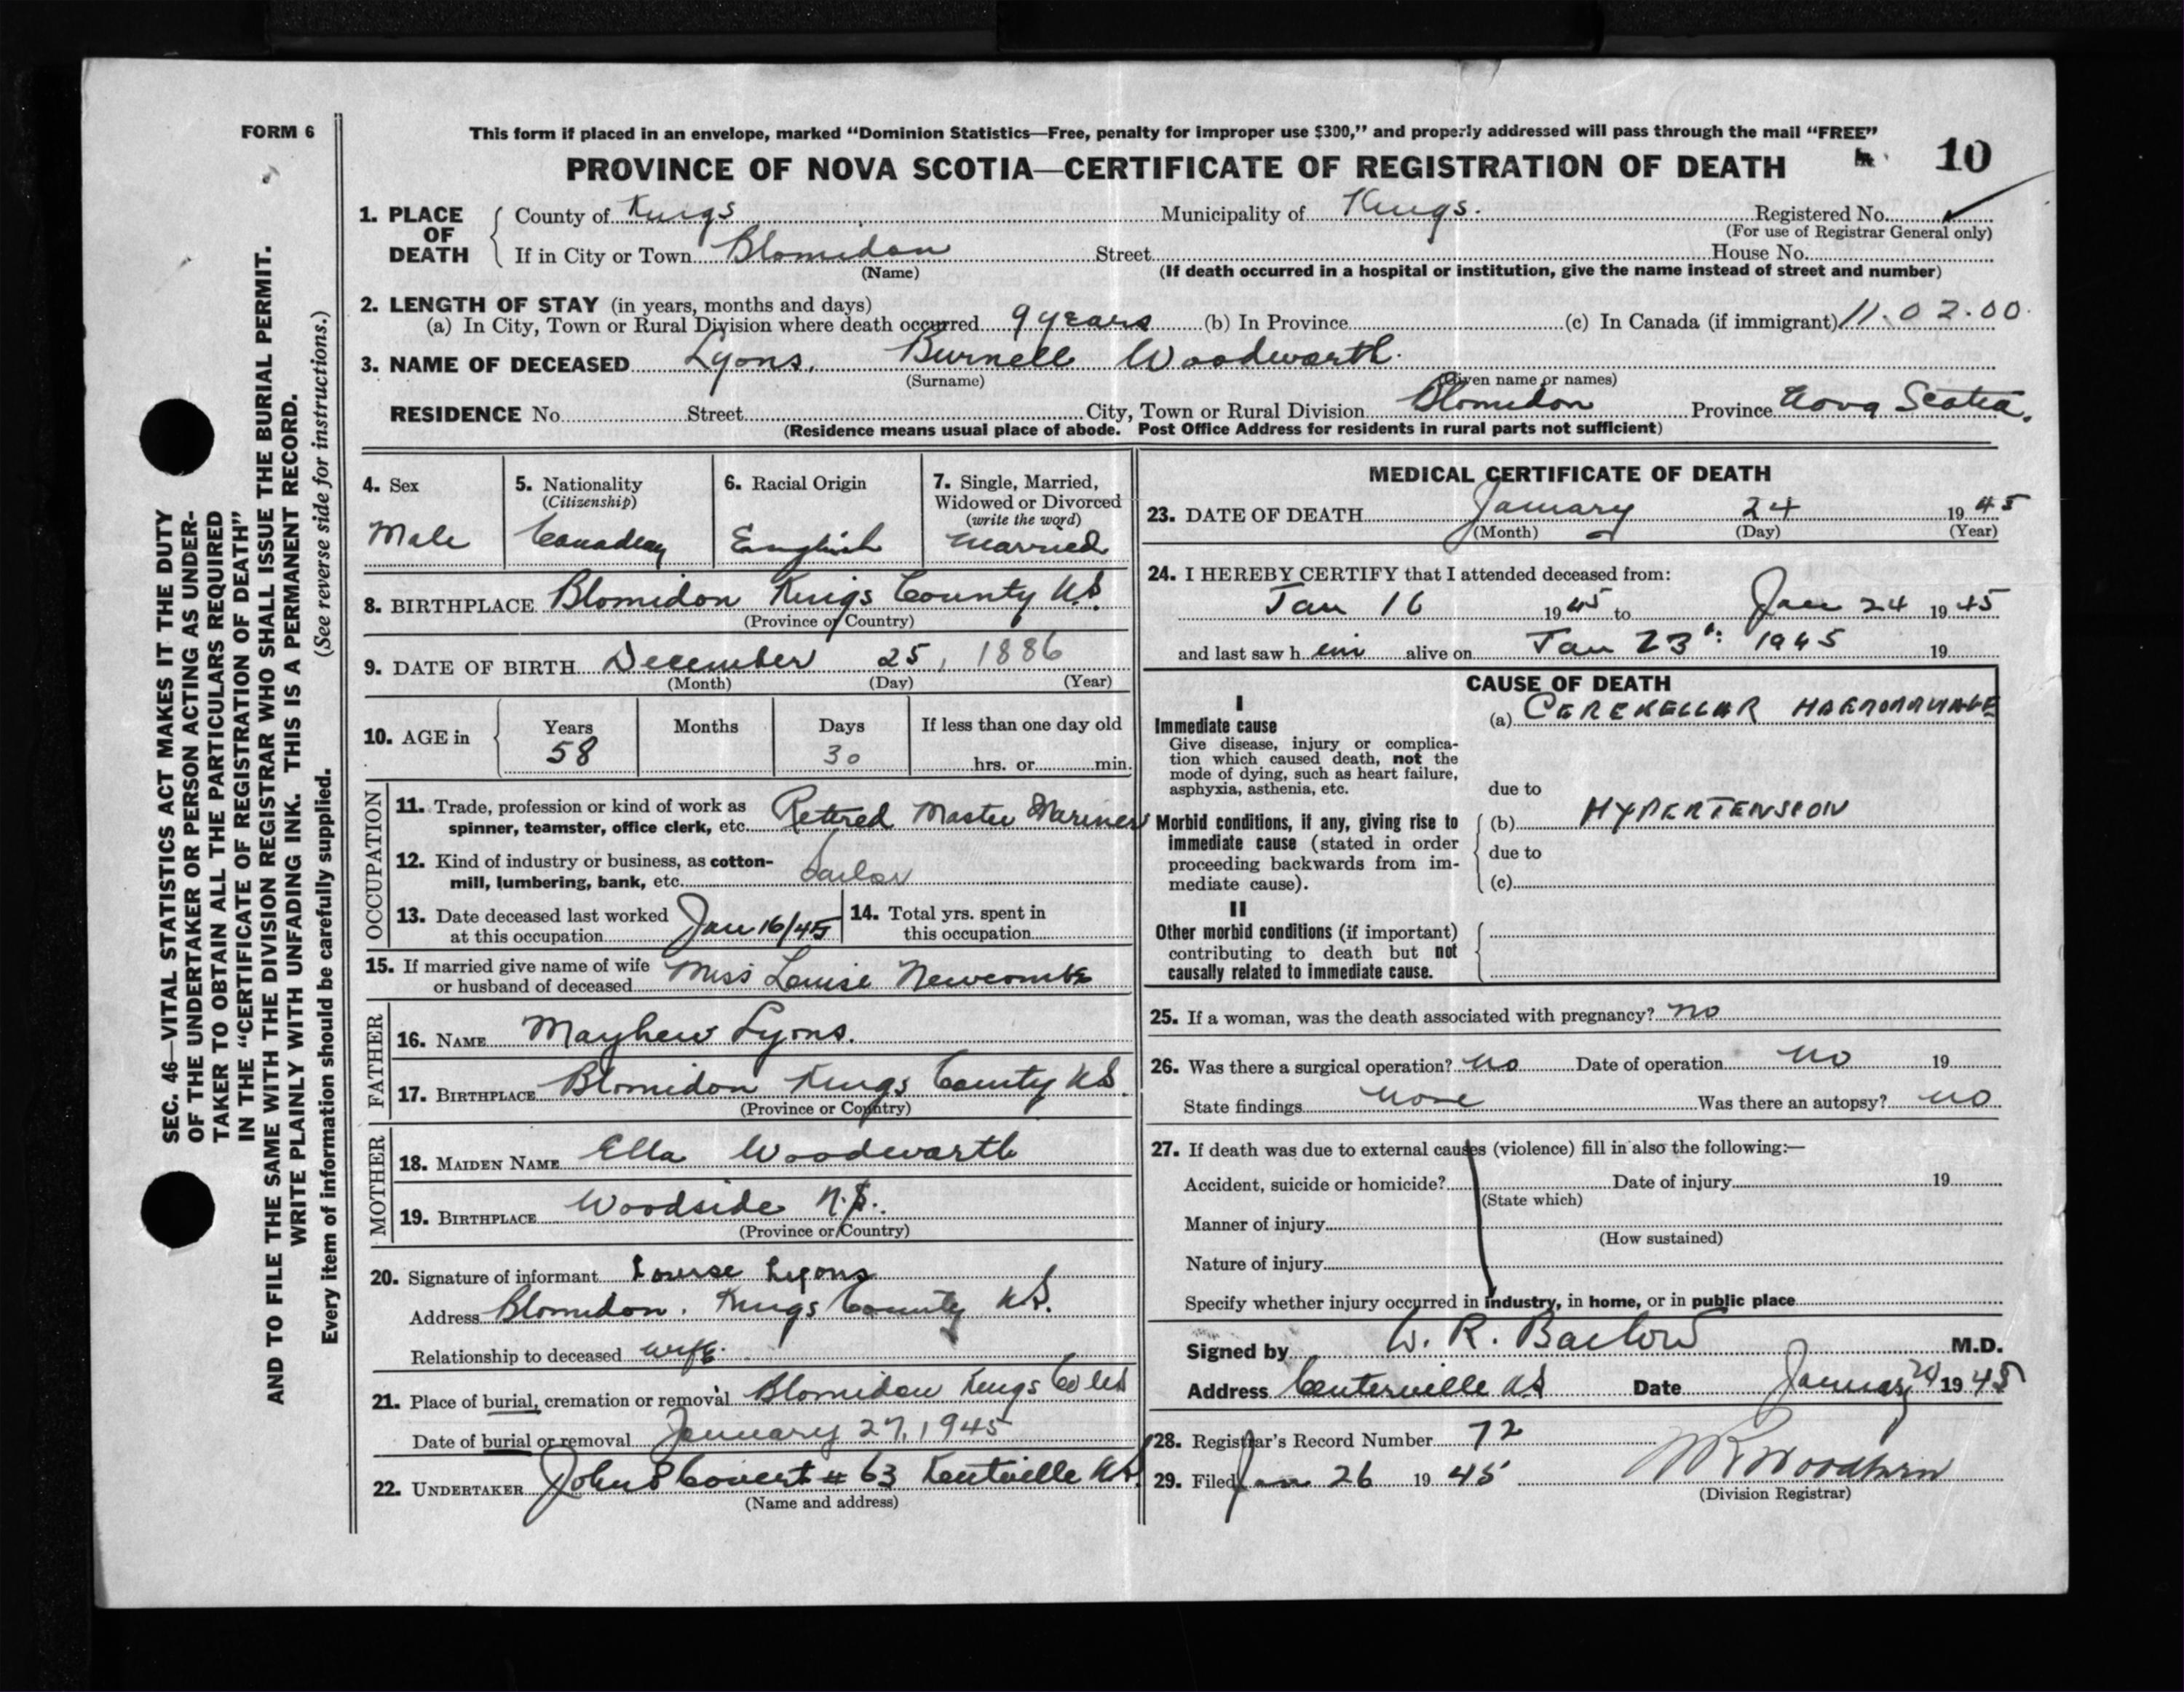 FORM 6
This form if placed in an envelope, marked “Dominion Statistics—Free, penalty for improper use $300,” and properly addressed will pass through the mail “FREE”
PROVINCE OF NOVA SCOTIA—CERTIFICATE OF REGISTRATION OF DEATH
10
1. PLACE OF DEATH
County of Kings Municipality of Kings. Registered No.
(For use of Registrar General only)
If in City or Town Blomidon Street House No.
(Name) (If death occurred in a hospital or institution, give the name instead of street and number)
2. LENGTH OF STAY (in years, months and days)
(a) In City, Town or Rural Division where death occurred 9 years (b) In Province (c) In Canada (if immigrant) 11.02.00.
3. NAME OF DECEASED Lyons, Burnell Woodworth.
(Surname) (Given name or names)
RESIDENCE No. Street City, Town or Rural Division Blomidon Province Nova Scotia.
(Residence means usual place of abode. Post Office Address for residents in rural parts not sufficient)
4. Sex
Male
5. Nationality
(Citizenship)
Canadian
6. Racial Origin
English
7. Single, Married,
Widowed or Divorced
(write the word)
Married
8. BIRTHPLACE Blomidon Kings County N.S.
(Province or Country)
9. DATE OF BIRTH December 25, 1886
(Month) (Day) (Year)
10. AGE in
Years Months Days If less than one day old
58 30 hrs. or min.
OCCUPATION
11. Trade, profession or kind of work as
spinner, teamster, office clerk, etc. Retired Master Mariner
12. Kind of industry or business, as cotton-
mill, lumbering, bank, etc. Sailor
13. Date deceased last worked
at this occupation Jan 16/45
14. Total yrs. spent in
this occupation
15. If married give name of wife
or husband of deceased Miss Louise Newcombe
FATHER
16. NAME Mayhew Lyons.
17. BIRTHPLACE Blomidon Kings County N.S.
(Province or Country)
MOTHER
18. MAIDEN NAME Ella Woodworth
19. BIRTHPLACE Woodside N.S.
(Province or Country)
20. Signature of informant Louise Lyons
Address Blomidon. Kings County N.S.
Relationship to deceased wife.
21. Place of burial, cremation or removal Blomidon Kings Co NS
Date of burial or removal January 27, 1945
22. UNDERTAKER John S Covert # 63 Kentville N.S.
(Name and address)
MEDICAL CERTIFICATE OF DEATH
23. DATE OF DEATH January 24 1945
(Month) (Day) (Year)
24. I HEREBY CERTIFY that I attended deceased from:
Jan 16 1945 to Jan 24 1945
and last saw him alive on Jan 23 1945 19
CAUSE OF DEATH
I
Immediate cause
Give disease, injury or complica-
tion which caused death, not the
mode of dying, such as heart failure,
asphyxia, asthenia, etc.
(a) CEREBELLAR HAEMORRHAGE
due to
Morbid conditions, if any, giving rise to
immediate cause (stated in order
proceeding backwards from im-
mediate cause).
(b) HYPERTENSION
due to
(c)
II
Other morbid conditions (if important)
contributing to death but not
causally related to immediate cause.
25. If a woman, was the death associated with pregnancy? no
26. Was there a surgical operation? no Date of operation no 19
State findings none Was there an autopsy? no
27. If death was due to external causes (violence) fill in also the following:—
Accident, suicide or homicide? Date of injury 19
(State which)
Manner of injury
(How sustained)
Nature of injury
Specify whether injury occurred in industry, in home, or in public place
Signed by W. R. Barlow M.D.
Address Centerville NS Date January 1945
28. Registrar's Record Number 72
29. Filed Jan 26 1945
(Division Registrar)
SEC. 46—VITAL STATISTICS ACT MAKES IT THE DUTY
OF THE UNDERTAKER OR PERSON ACTING AS UNDER-
TAKER TO OBTAIN ALL THE PARTICULARS REQUIRED
IN THE “CERTIFICATE OF REGISTRATION OF DEATH”
AND TO FILE THE SAME WITH THE DIVISION REGISTRAR WHO SHALL ISSUE THE BURIAL PERMIT.
WRITE PLAINLY WITH UNFADING INK. THIS IS A PERMANENT RECORD.
Every item of information should be carefully supplied. (See reverse side for instructions.)